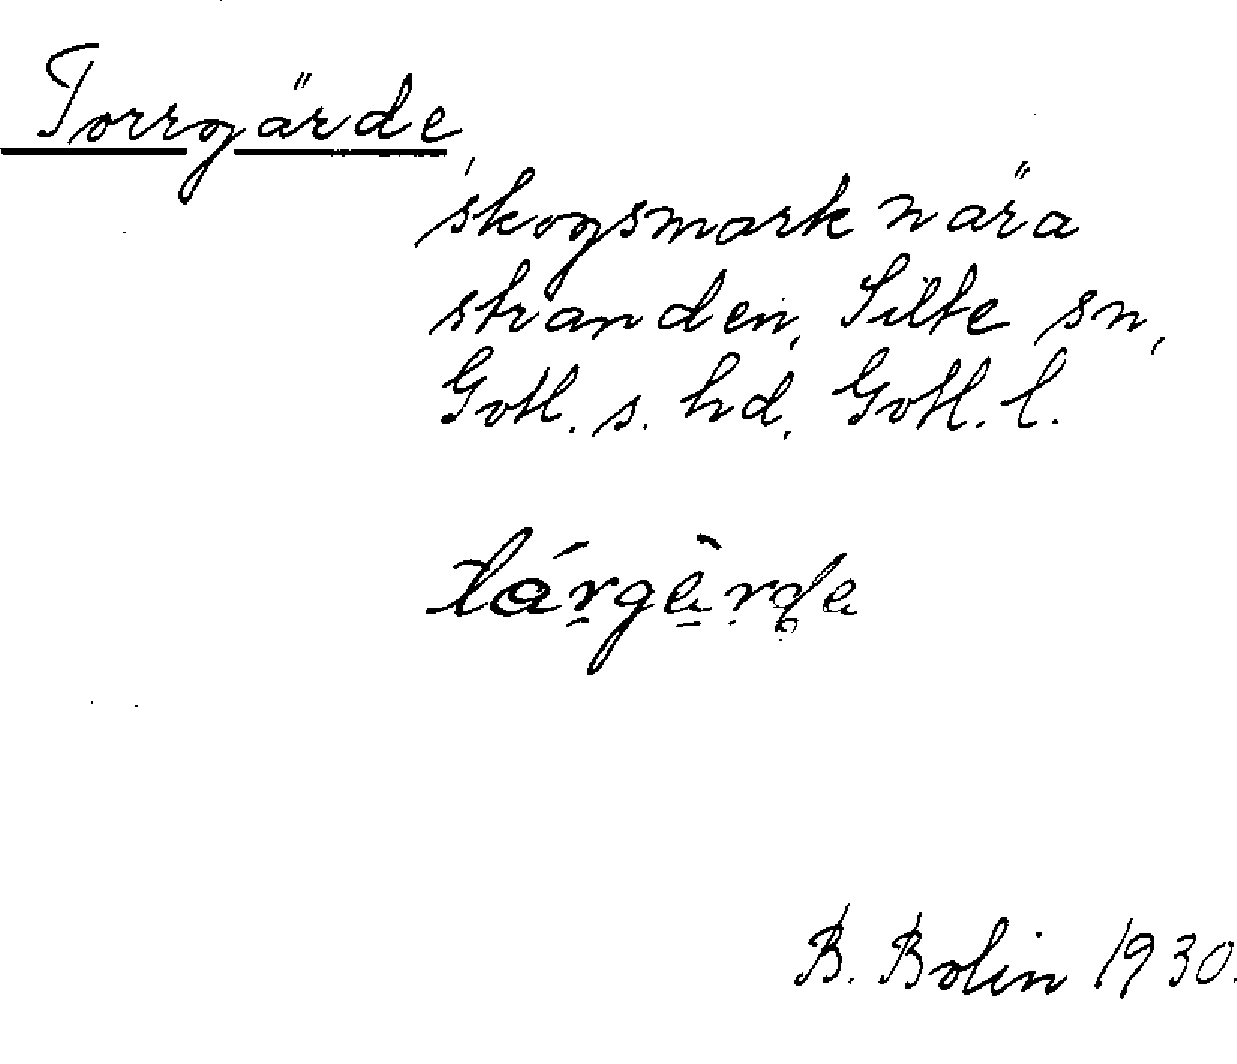 Torrgärde,
skogsmark nära
stranden, Silte sn,
Gotl. s. hd, Gotl. l.
B. Bolin 1930.